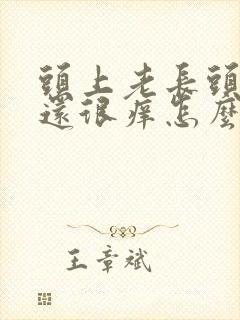 頭上老長頭
還很癢怎麼
王章斌